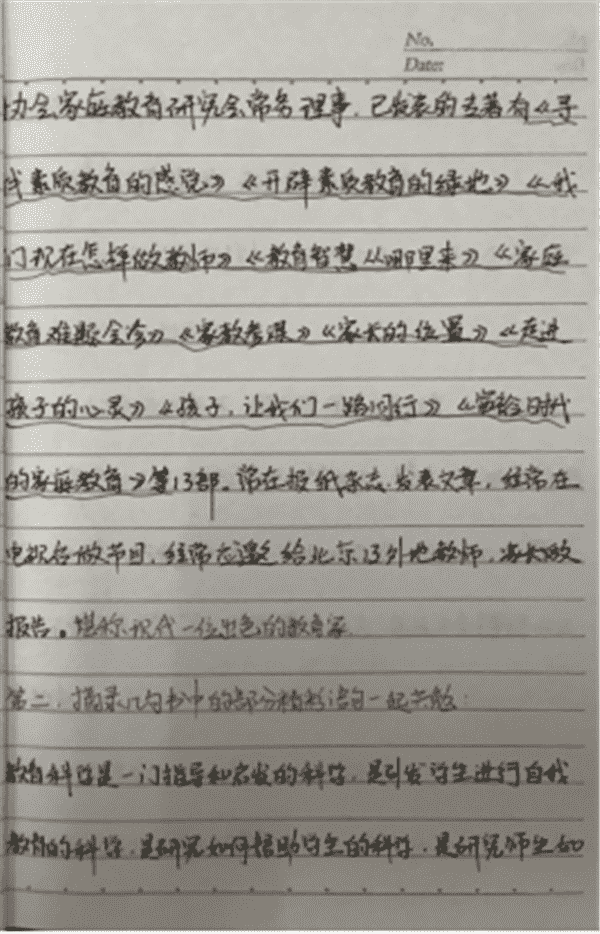 No.
Date:
协会家庭教育研究会常务理事，已发表的专著有《寻
找素质教育的感觉》《开辟素质教育的绿地》《我
们现在怎样做教师》《教育智慧从哪里来》《家庭
教育难题会诊》《家教参谋》《家长的位置》《走进
孩子的心灵》《孩子，让我们一路同行》《写给时代
的家庭教育》等13部。常在报纸杂志发表文章，经常在
电视台做节目，经常应邀给北京及外地教师，家长做
报告。堪称现代一位出色的教育家
第二，摘录几句书中的部分精彩语句一起共勉：
教育科学是一门指导和启发的科学，是引发学生进行自我
教育的科学，是研究如何帮助学生的科学，是研究师生如